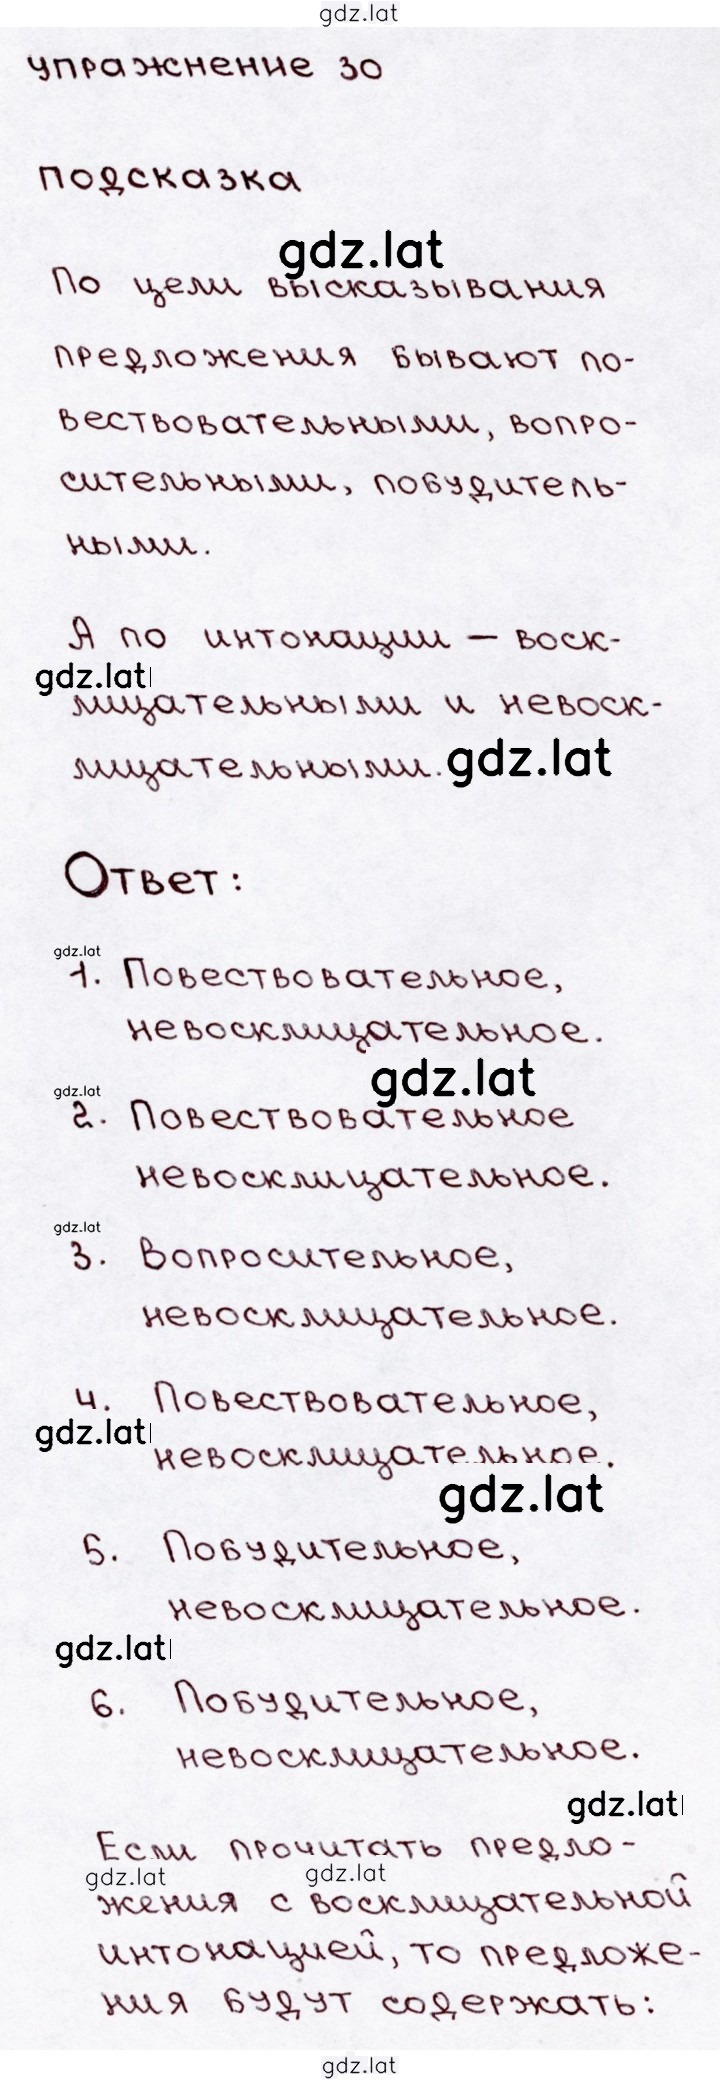 gdz.lat
упражнение 30
подсказка
gdz.lat
По цели высказывания
предложения бывают по-
вествовательными, вопро-
сительными, побудитель-
ными.
А по интонации – воск-
gdz.lat
лицательными и невоск-
лицательными. gdz.lat
Ответ:
gdz.lat
1. Повествовательное,
невосклицательное.
gdz.lat
gdz.lat
2. Повествовательное
невосклицательное.
gdz.lat
3. Вопросительное,
невосклицательное.
4. Повествовательное,
gdz.lat
невосклицательное.
gdz.lat
5. Побудительное,
невосклицательное.
gdz.lat
6. Побудительное,
невосклицательное.
gdz.lat
Если прочитать предло-
gdz.lat gdz.lat
жения с восклицательной
интонацией, то предложе-
ния будут содержать:
gdz.lat